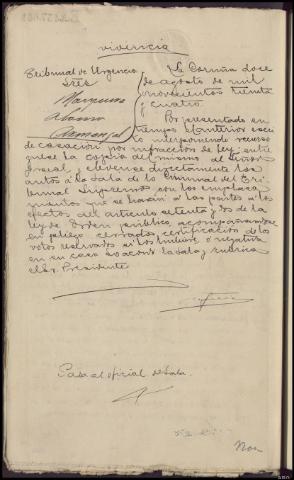 vivencia
Tribunal de Urgencia
Sres
La Coruña doce
de agosto de mil
novecientos treinta
y cuatro.
Por presentado en
tiempo el anterior escri
to interponiendo recurso
de casación por infracción de ley; entre
guese la copia del mismo al Señor
Fiscal, elevense directamente los
autos a la Sala de lo Criminal del Tri
bunal Supremo con los emplaza
mientos que se harán a las partes a los
efectos del articulo setenta y dos de la
ley de Orden público acompañandose
en pliego cerrado, certificación de los
votos reservados si los hubiere o negativa
en su caso lo acordó la Sala y rubrica
el Sr. Presidente
Pasa al oficial de Sala.